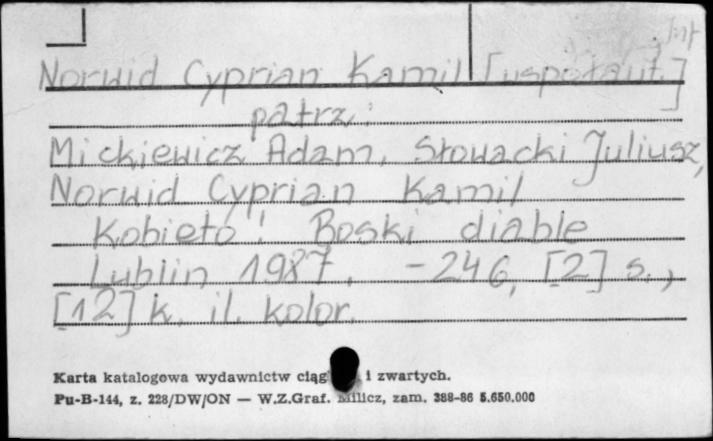 Norwid Cyprian Kamil [współaut.]
patrz:
Mickiewicz Adam, Słowacki Juliusz,
Norwid Cyprian Kamil
Kobieto! Boski diable
Lublin 1987. - 246, [2] s.,
[12] k. il. kolor.
Karta katalogowa wydawnictw ciąg i zwartych.
Pu-B-144, z. 228/DW/ON — W.Z.Graf. Milicz, zam. 388-86 5.650.000